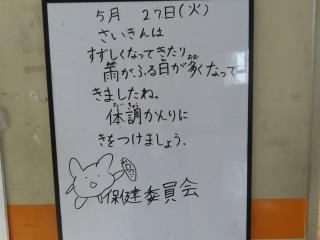 5月 27日(火)
さいきんは
すずしくなってきたり
雨がふる日が多くなって
きましたね。
体調かんりに
きをつけましょう.
保健委員会